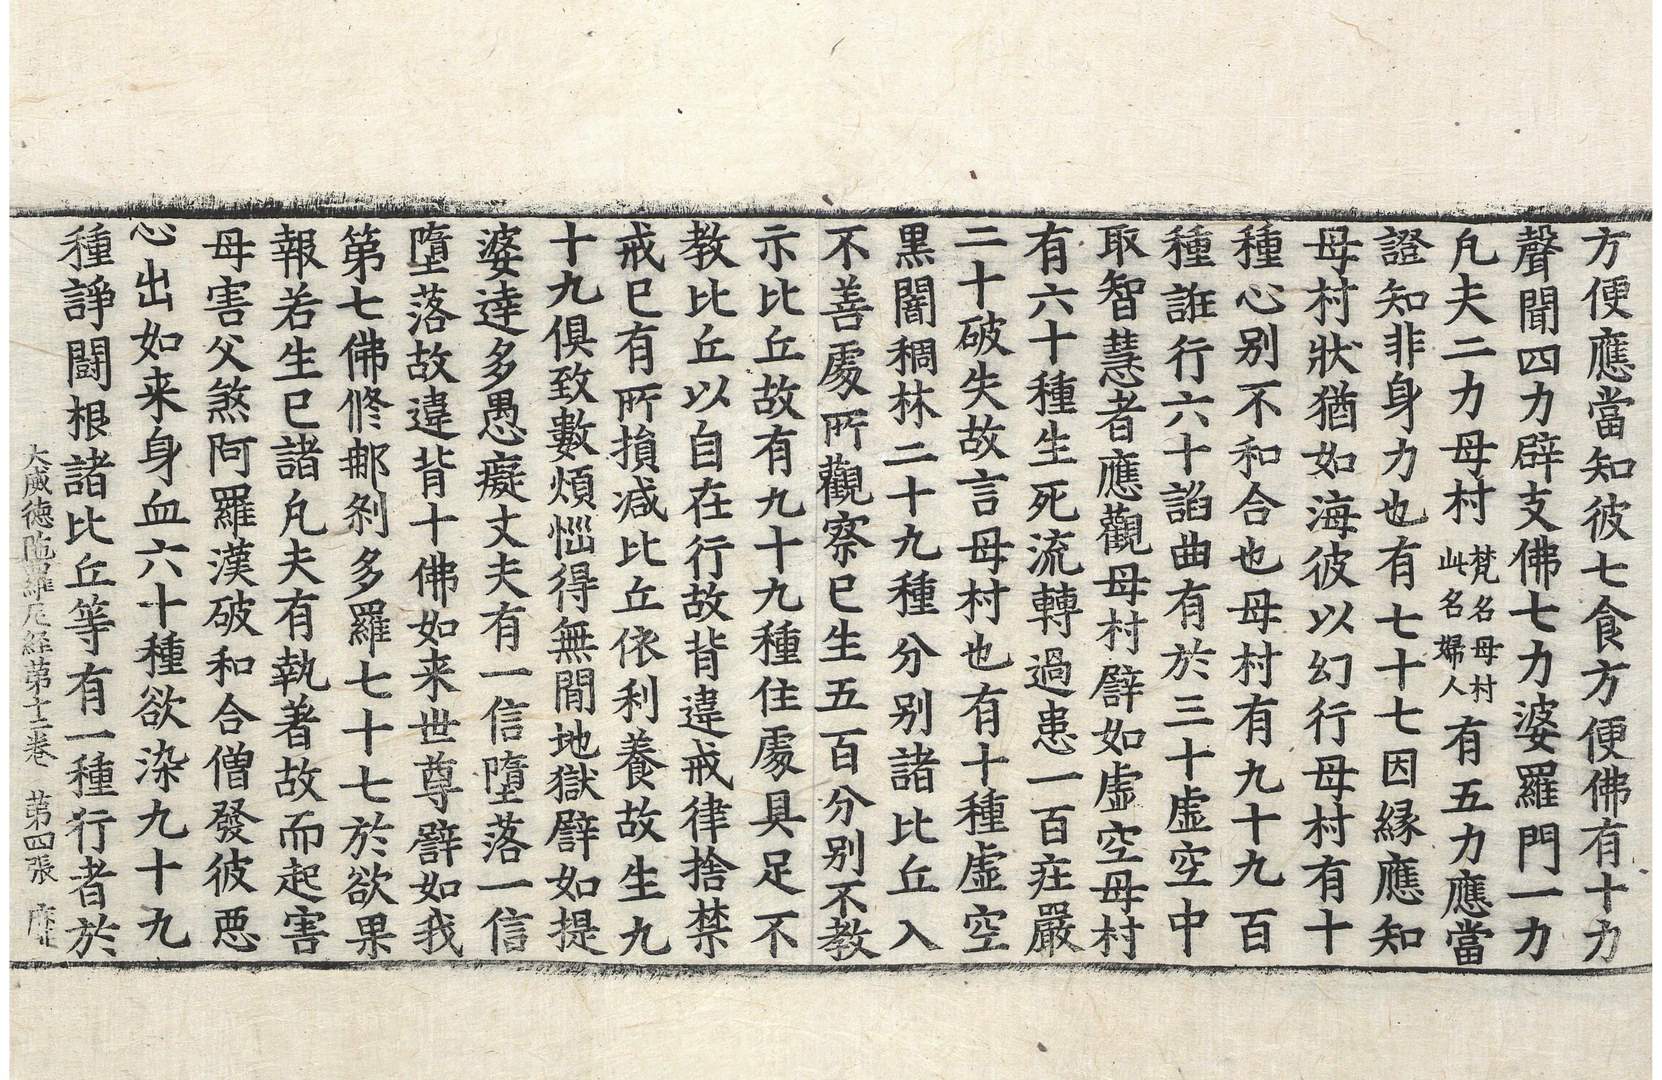 方便應當知彼七食方便佛有十力
聲聞四力辟支佛七力婆羅門一力
凢夫二力母村梵名母村此名婦人有五力應當
證知非身力也有七十七因縁應知
母村狀猶如海彼以幻行母村有十
種心别不和合也母村有九十九百
種誑行六十諂曲有於三十虛空中
取智慧者應觀母村譬如虛空母村
有六十種生死流轉過患一百㽵嚴
二十破失故言母村也有十種虛空
黒闇稠林二十九種分别諸比丘入
不善處所觀察已生五百分别不教
示比丘故有九十九種住處具足不
教比丘以自在行故背違戒律捨禁
戒已有所損减比丘依利養故生九
十九俱致數煩惱得無間地獄譬如提
婆達多愚癡丈夫有一信墮落一信
墮落故違背十佛如来世尊譬如我
第七佛修鄌剎多羅七十七於欲果
報若生已諸凢夫有執著故而起害
母害父煞阿羅漢破和合僧發彼惡
心出如来身血六十種欲染九十九
種諍鬪根諸比丘等有一種行者於
大威德陁羅尼経第十二卷 第四張 靡